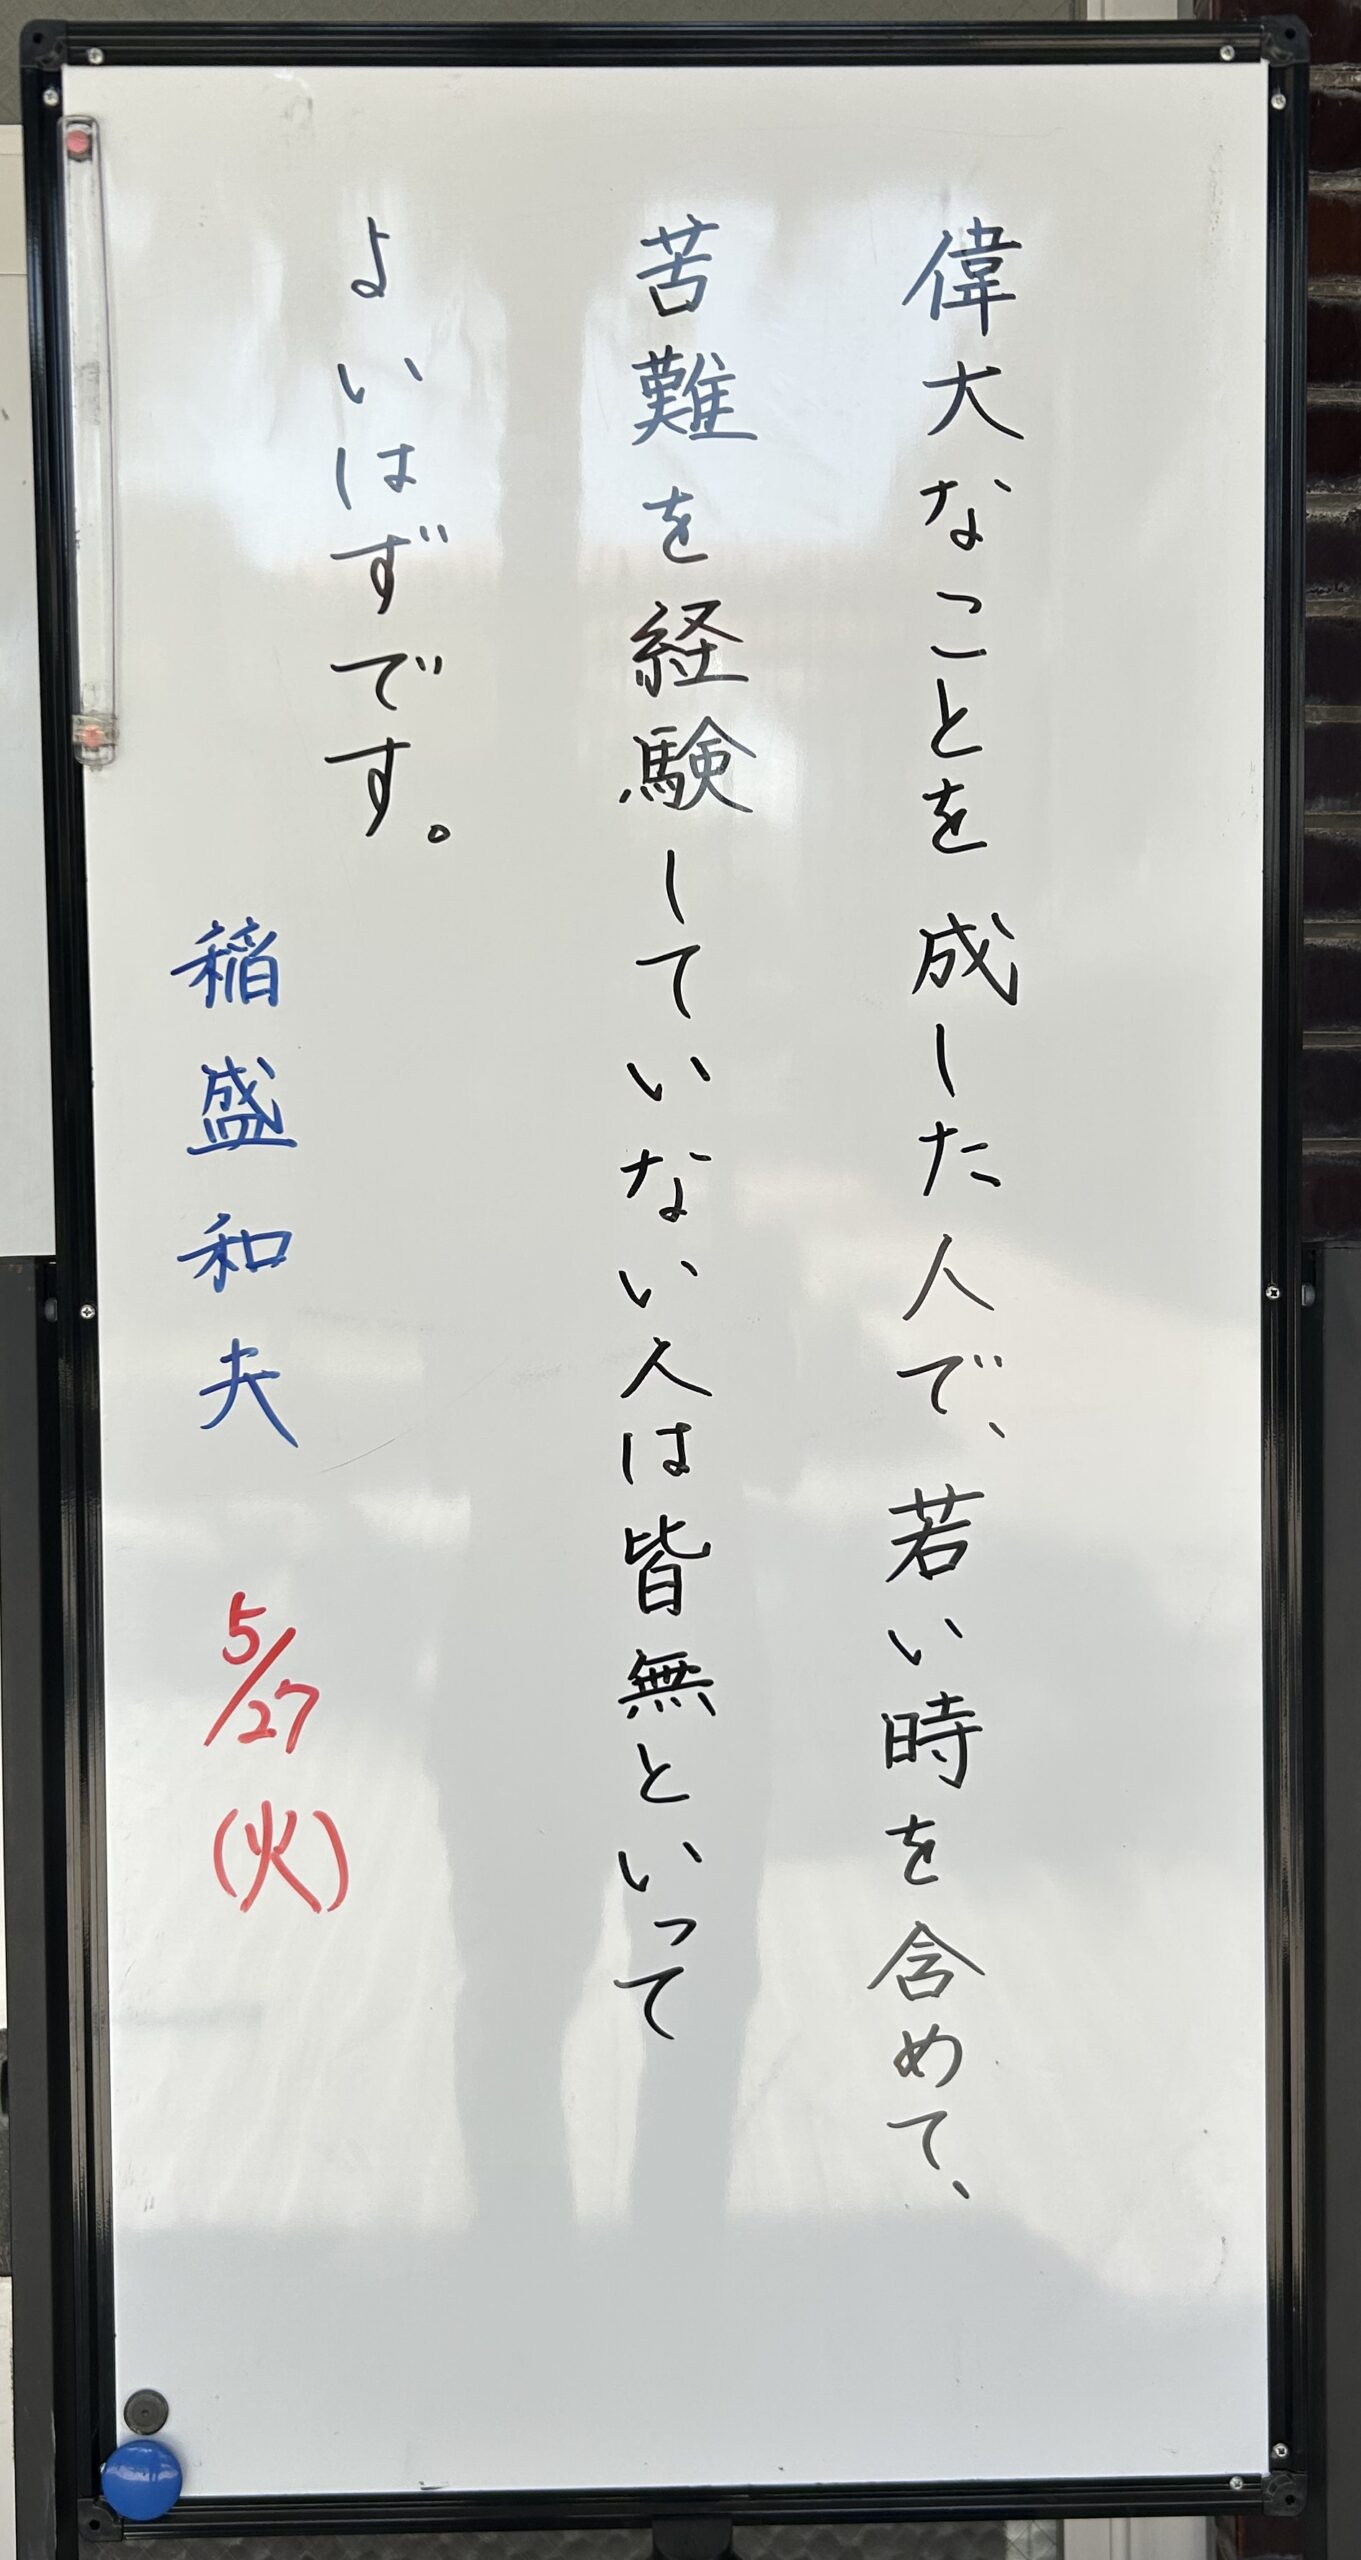 偉大なことを成した人で、若い時を含めて、
苦難を経験していない人は皆無といって
よいはずです。
稲盛和夫 5/27(火)